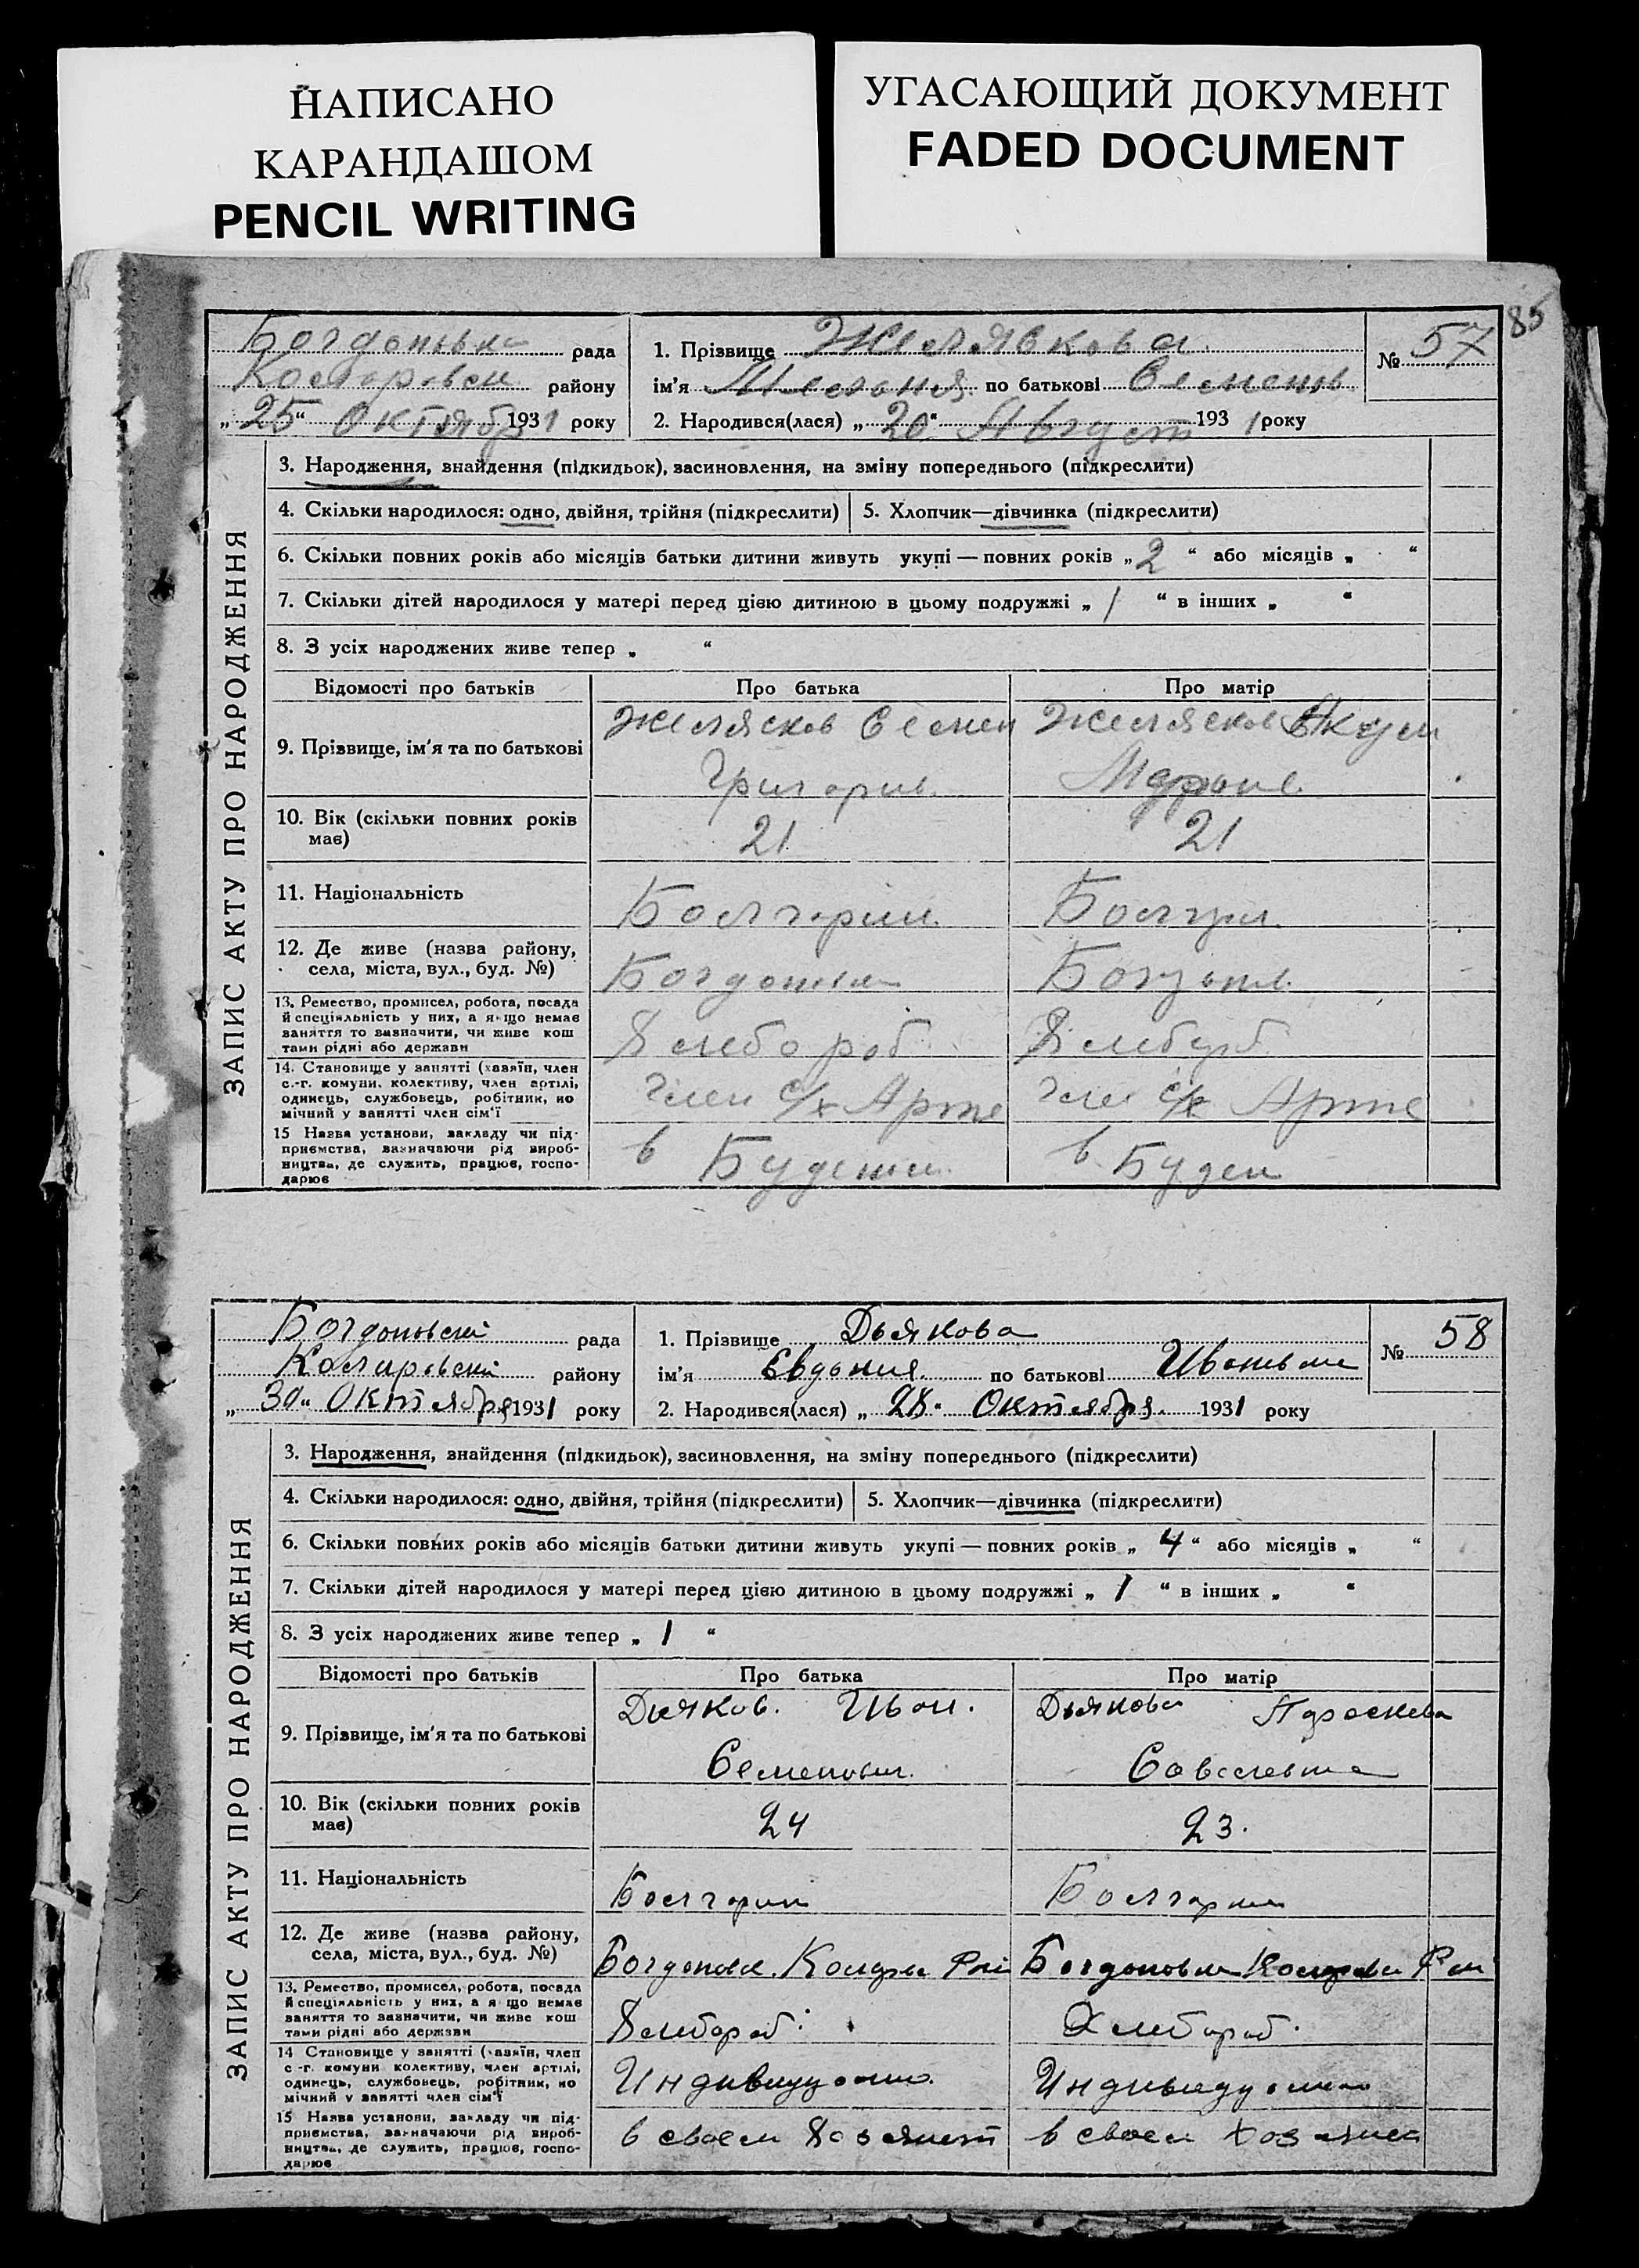 НАПИСАНО
КАРАНДАШОМ
PENCIL WRITING
УГАСАЮЩИЙ ДОКУМЕНТ
FADED DOCUMENT
85
ЗАПИС АКТУ ПРО НАРОДЖЕННЯ
рада
району
„25“ Октябр 1931 року
1. Прізвище
ім'я по батькові
2. Народився(лася) „20“ Август 1931 року
№ 57
3. Народження, знайдення (підкидьок), засиновлення, на зміну попереднього (підкреслити)
4. Скільки народилося: одно, двійня, трійня (підкреслити)
5. Хлопчик—дівчинка (підкреслити)
6. Скільки повних років або місяців батьки дитини живуть укупі — повних років „2“ або місяців „ “
7. Скільки дітей народилося у матері перед цією дитиною в цьому подружжі „1“ в інших „ “
8. З усіх народжених живе тепер „ “
Відомості про батьків
Про батька
Про матір
9. Прізвище, ім'я та по батькові
Желясков Семен
Желясков
Григорив.
10. Вік (скільки повних років
має)
21
21
11. Національність
Болгарин.
12. Де живе (назва району,
села, міста, вул., буд. №)
13. Ремество, промисел, робота, посада
й спеціяльність у них, а якщо немає
заняття то визначити, чи живе кош
тами рідні або держави
Хлебороб
14. Становище у занятті (хазяїн, член
с.-г. комуни, колективу, член артілі,
одинець, службовець, робітник, по
мічний у занятті член сім'ї
член с/х Арте
член с/х Арте
15 Назва установи, закладу чи під-
приємства, зазначаючи рід вироб-
ництва, де служить, працює, госпо-
дарює
в Буденн.
в Буден
ЗАПИС АКТУ ПРО НАРОДЖЕННЯ
Богдановский рада
Коларовский району
„30“ Октября 1931 року
1. Прізвище Дьякова
ім'я Євдокия по батькові Ивановна
2. Народився(лася) „28“ Октября 1931 року
№ 58
3. Народження, знайдення (підкидьок), засиновлення, на зміну попереднього (підкреслити)
4. Скільки народилося: одно, двійня, трійня (підкреслити)
5. Хлопчик—дівчинка (підкреслити)
6. Скільки повних років або місяців батьки дитини живуть укупі — повних років „4“ або місяців „ “
7. Скільки дітей народилося у матері перед цією дитиною в цьому подружжі „1“ в інших „ “
8. З усіх народжених живе тепер „1“
Відомості про батьків
Про батька
Про матір
9. Прізвище, ім'я та по батькові
Дьяков. Иван.
Дьякова Параскева
Семенович.
Савелевна
10. Вік (скільки повних років
має)
24
23.
11. Національність
Болгарин
Болгарин
12. Де живе (назва району,
села, міста, вул., буд. №)
13. Ремество, промисел, робота, посада
й спеціяльність у них, а якщо немає
заняття то зазначити, чи живе кош
тами рідні або держави
Хлебороб.
Хлебороб.
14 Становище у занятті (хазяїн, член
с-г. комуни колективу, член артілі,
одинець, службовець, робітник, по
мічний у занятті член сім'ї
15 Назва установи, закладу чи під-
приємства, зазначаючи рід вироб-
ництва, де служить, працює, госпо-
дарює
в своем Хозяист
в своем хозяист